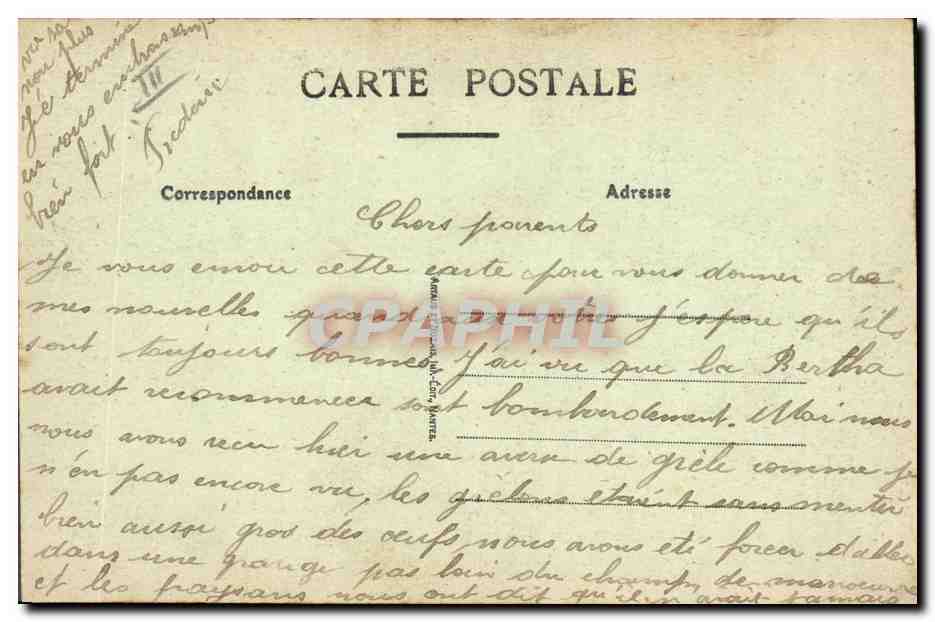 CARTE POSTALE
Correspondance
Adresse
Chers parents
Je vous envoie cette carte pour vous donner des
mes nouvelles quand aux votre j'espère qu'ils
sont toujours bonnes. J'ai vu que la Bertha
avait recommencer sont bombardement. Moi nous
nous avons recu hier une averse de grèle comme je
n'én pas encore vu, les grèlons étaient sans mentir
bien aussi gros des oeufs nous avons été forcer d'aller
dans une grange pas loin du champ de manoeuvre
et les paysans nous ont dit qu'il n'avait jamais
vu sa
non plus
Jé termine
en vous embrassant
bien fort
III
Frédéric
NANTES.
CPAPHIL